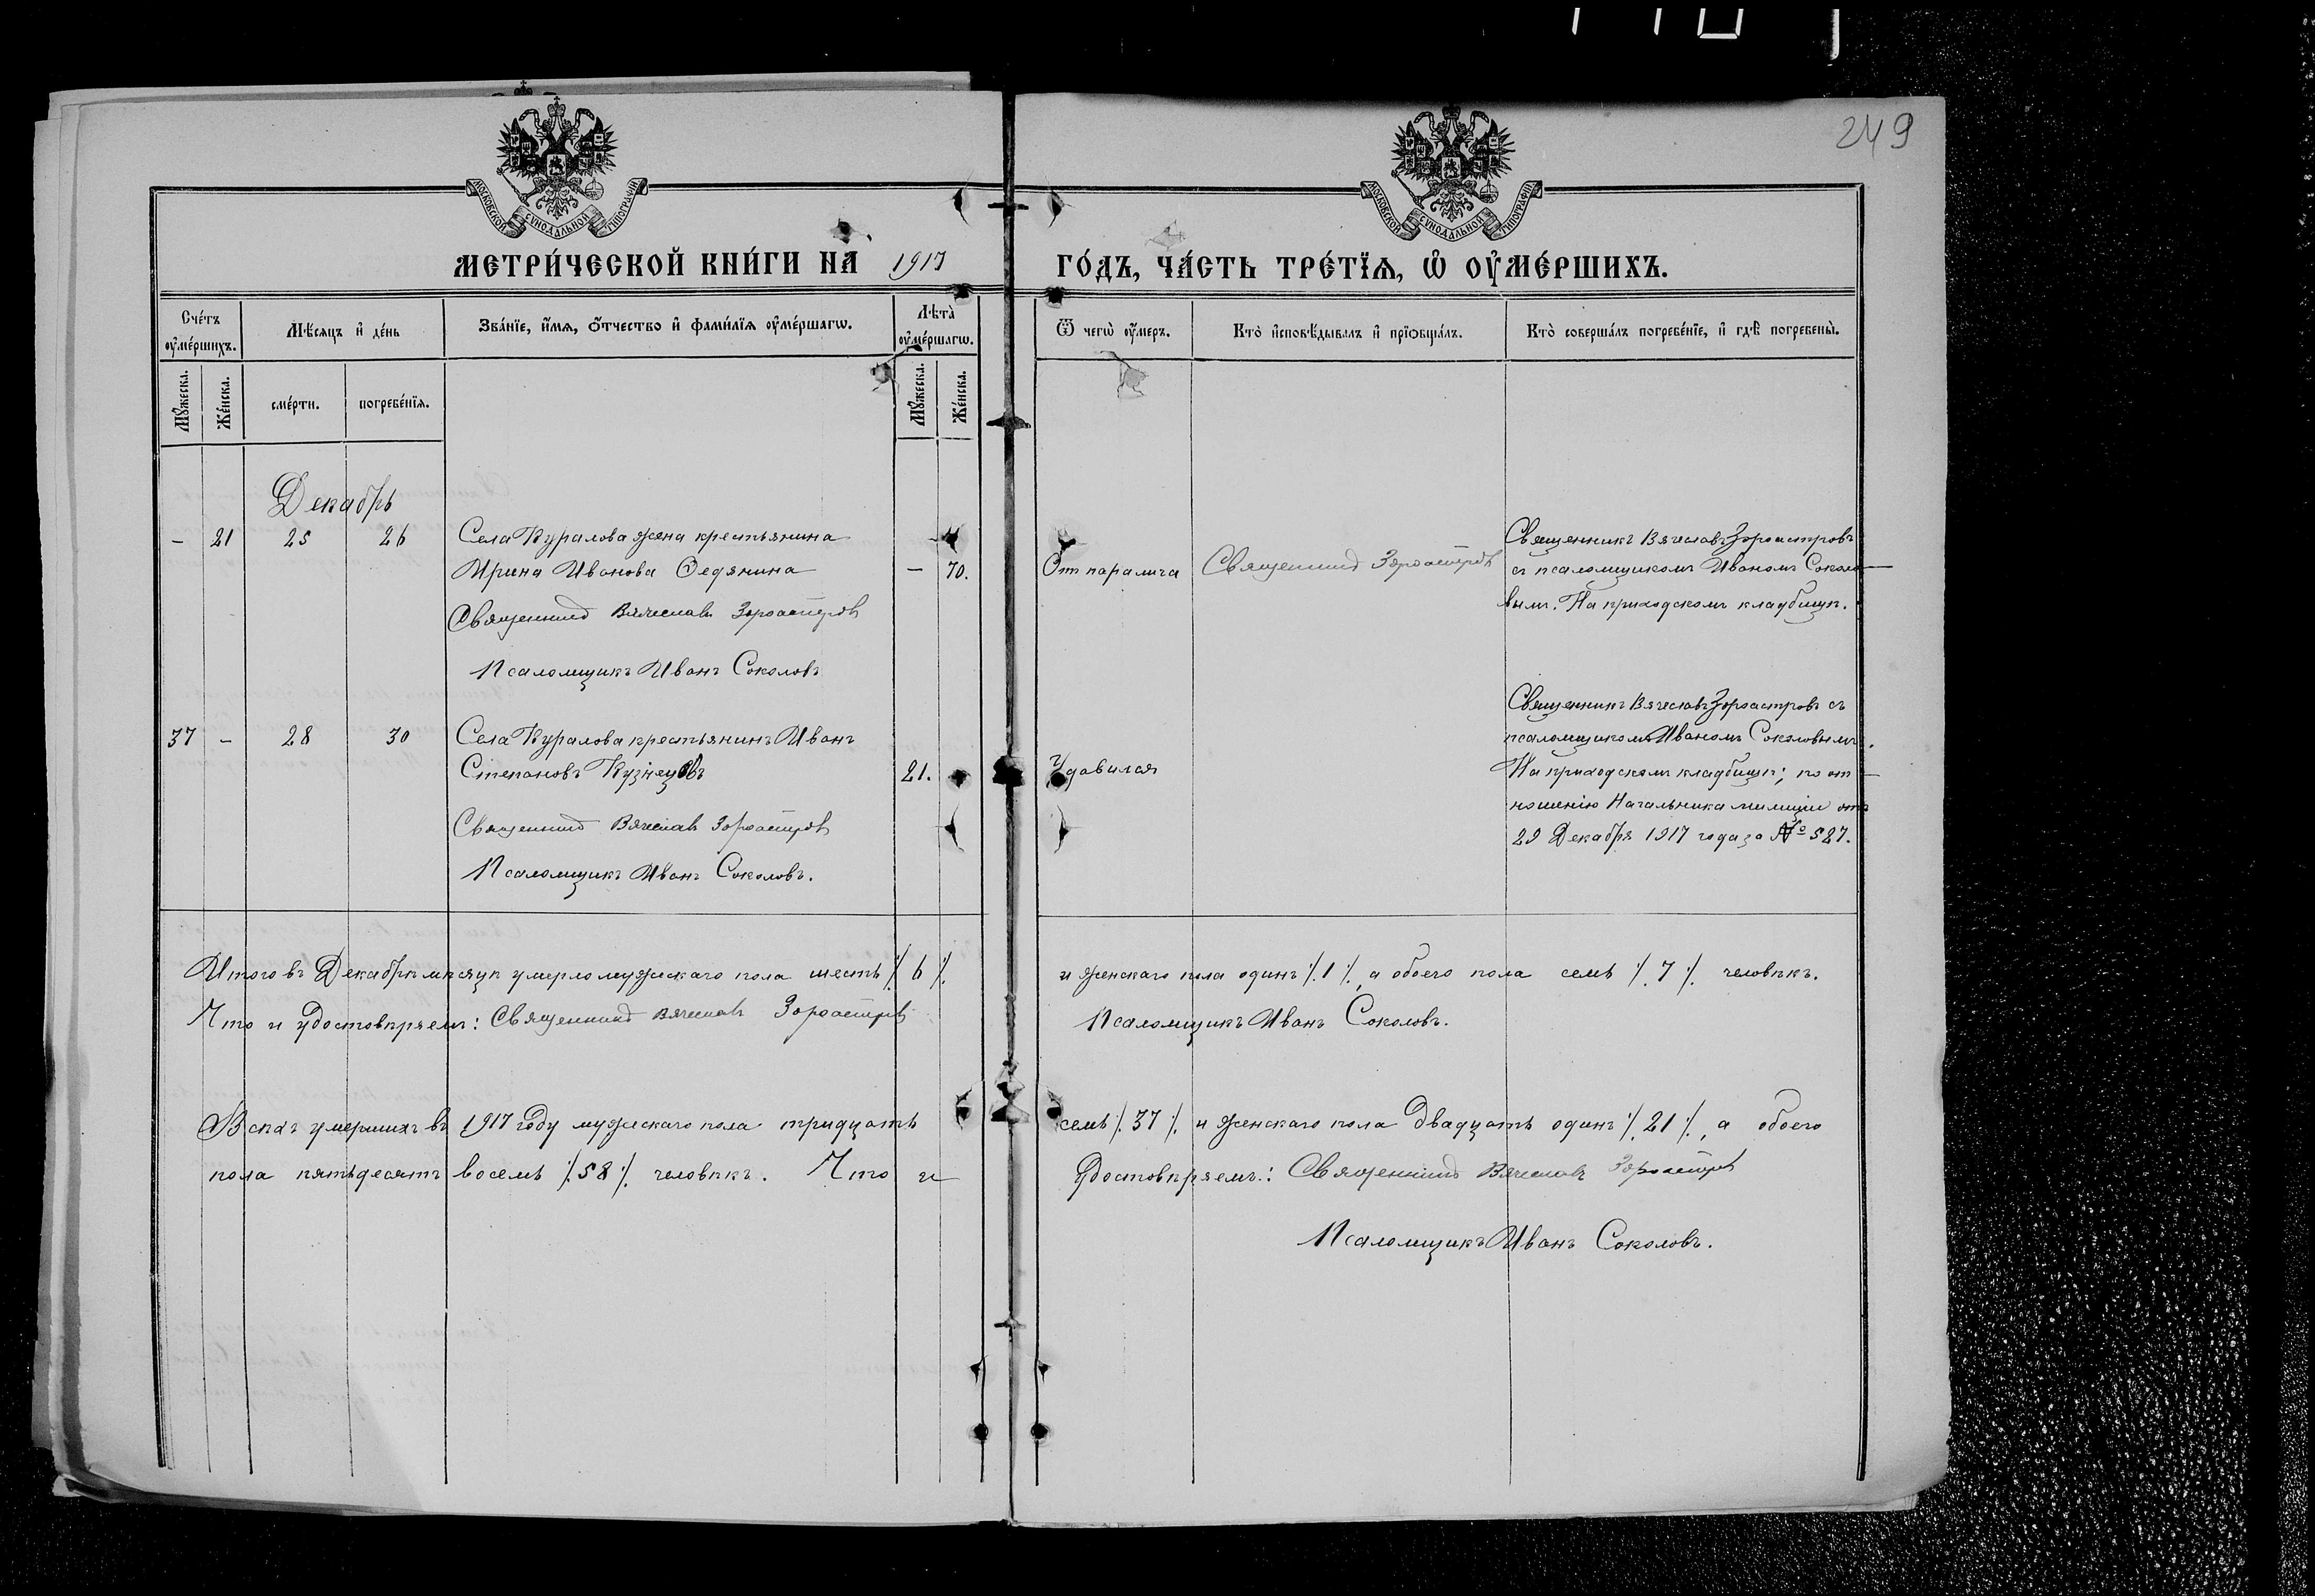 249
МОСКОВСКОЙ СѴНОДАЛЬНОЙ ТИПОГРАФІИ
МОСКОВСКОЙ СѴНОДАЛЬНОЙ ТИПОГРАФІИ
МЕТРИ́ЧЕСКОЙ КНИ́ГИ НА 1917 ГО́ДЪ, ЧА́СТЬ ТРЕ́ТЇѦ, Ѡ҆ ОУ҆МЕ́РШИХЪ.
Сче́тъ оу҆ме́ршихъ.
Мѣ́сяцъ и҆ де́нь
Зва́нїе, и҆́мѧ, ѻ҆́тчество и҆ фами́лїѧ оу҆ме́ршагѡ.
Лѣ̑та оу҆ме́ршагѡ.
Ѿ чегѡ̀ оу҆́меръ.
Кто̀ и҆сповѣ́дывалъ и҆ прїѻбща́лъ.
Кто̀ соверша́лъ погребе́нїе, и҆ гдѣ̀ погребены̀.
Мꙋ́жеска.
Же́нска.
сме́рти.
погребе́нїѧ.
Мꙋ́жеска.
Же́нска.
Декабрь
- 21 25 26 Села Куралова жена крестьянина
Ирина Иванова Федянина - 70.
Священникъ Вячеславъ Зороастровъ
Псаломщикъ Иванъ Соколовъ
От паралича
Священникъ Зороастровъ
Священникъ Вячеславъ Зороастровъ
съ псаломщикомъ Иваномъ Соколо-
вымъ. На приходскомъ кладбищѣ.
37 - 28 30 Села Куралова крестьянинъ Иванъ
Степановъ Кузнецовъ 21.
Священникъ Вячеславъ Зороастровъ
Псаломщикъ Иванъ Соколовъ.
Удавился
Священникъ Вячеславъ Зороастровъ съ
псаломщикомъ Иваномъ Соколовымъ.
На приходскомъ кладбищѣ; по от-
ношенію Начальника милиціи отъ
29 Декабря 1917 года за № 527.
Итого въ Декабрѣ мѣсяцѣ умерло мужскаго пола шесть /. 6 /. и женскаго пола одинъ /. 1 /., а обоего пола семь /. 7 /. человѣкъ.
Что и удостовѣряемъ: Священникъ Вячеславъ Зороастровъ Псаломщикъ Иванъ Соколовъ.
Всѣхъ умершихъ въ 1917 году мужскаго пола тридцать семь /. 37 /. и женскаго пола двадцать одинъ /. 21 /., а обоего
пола пятьдесятъ восемь /. 58 /. человѣкъ. Что и удостовѣряемъ: Священникъ Вячеславъ Зороастровъ
Псаломщикъ Иванъ Соколовъ.